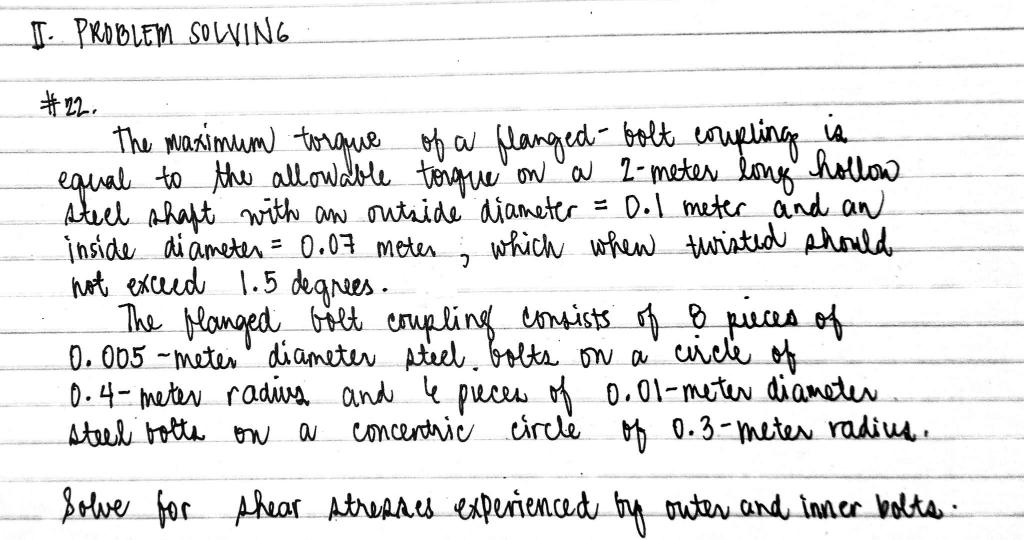 II. PROBLEM SOLVING
#22.
The maximum torque of a flanged-bolt coupling is
equal to the allowable torque on a 2-meter long hollow
steel shaft with an outside diameter = 0.1 meter and an
inside diameter = 0.07 meter, which when twisted should
not exceed 1.5 degrees.
The flanged bolt coupling consists of 8 pieces of
0.005-meter diameter steel bolts on a circle of
0.4-meter radius and pieces of 0.01-meter diameter
steel bolts on a concentric circle of 0.3-meter radius.
Solve for shear stresses experienced by outer and inner bolts.